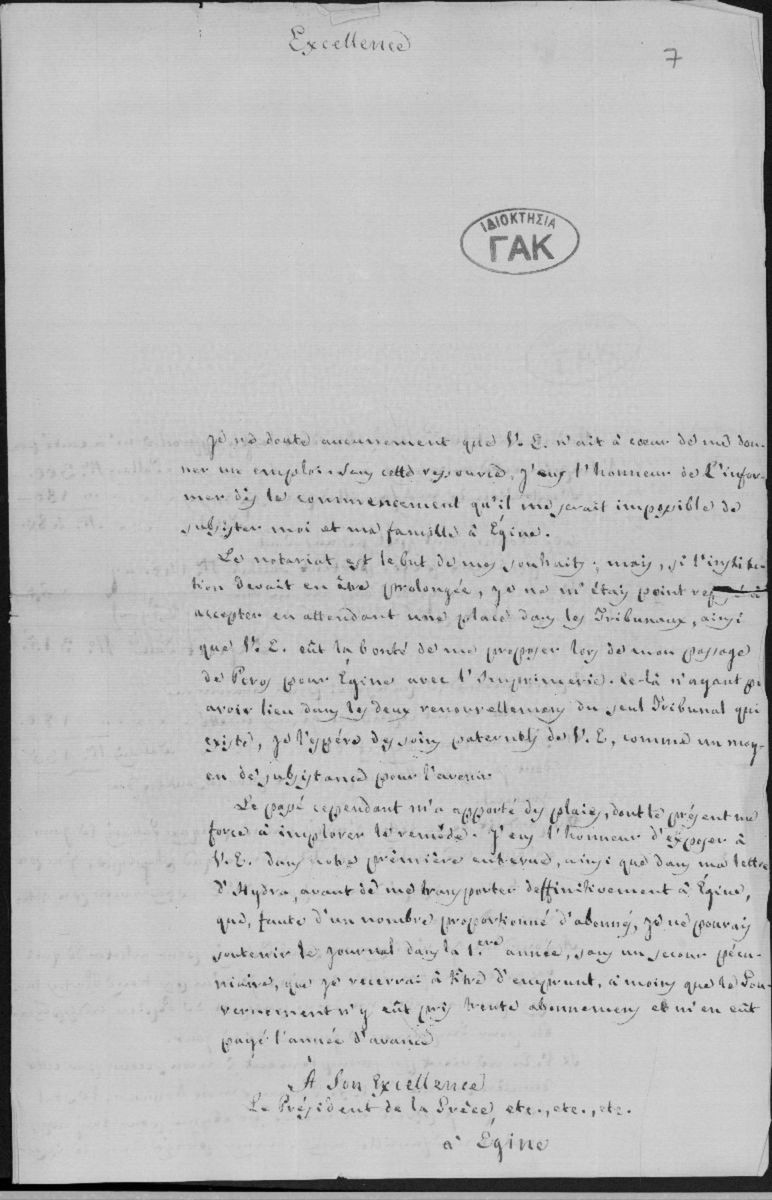 Excellence
7
ΙΔΙΟΚΤΗΣΙΑ
ΓΑΚ
Je ne doute aucunement que V. E. n'ait à cœur de me don-
ner un emploi. Sans cette ressource, j'eus l'honneur de L'infor-
mer dès le commencement qu'il me serait impossible de
subsister moi et ma famille à Egine.
Le notariat est le but de mes souhaits; mais, si l'institu-
tion devait en être prolongée, je ne m'étais point refusé à
accepter en attendant une place dans les Tribunaux, ainsi
que V. E. eût la bonté de me proposer lors de mon passage
de Poros pour Égine avec l'Imprimerie. Ce-là n'ayant pu
avoir lieu dans les deux renouvellemens du seul Tribunal qui
existe, je l'espère des soins paternels de V. E, comme un moy-
en de subsistance pour l'avenir
Le passé cependant m'a apporté des plaies, dont le présent me
force à implorer le remède. J'eus l'honneur d'exposer à
V. E. dans notre première entrevue, ainsi que dans ma lettre
d'Hydra, avant de me transporter deffinitivement à Égine,
que, faute d'un nombre proportionné d'abonnés, je ne pouvais
soutenir le journal dans la 1.ere année, sans un secour pécu-
niaire, que je recevrai à titre d'emprunt, à moins que le Gou-
vernement n'y eût pris trente abonnemens et m'en eût
payé l'année d'avance
À Son Excellence
Le Président de la Grèce, etc., etc., etc.
à Égine